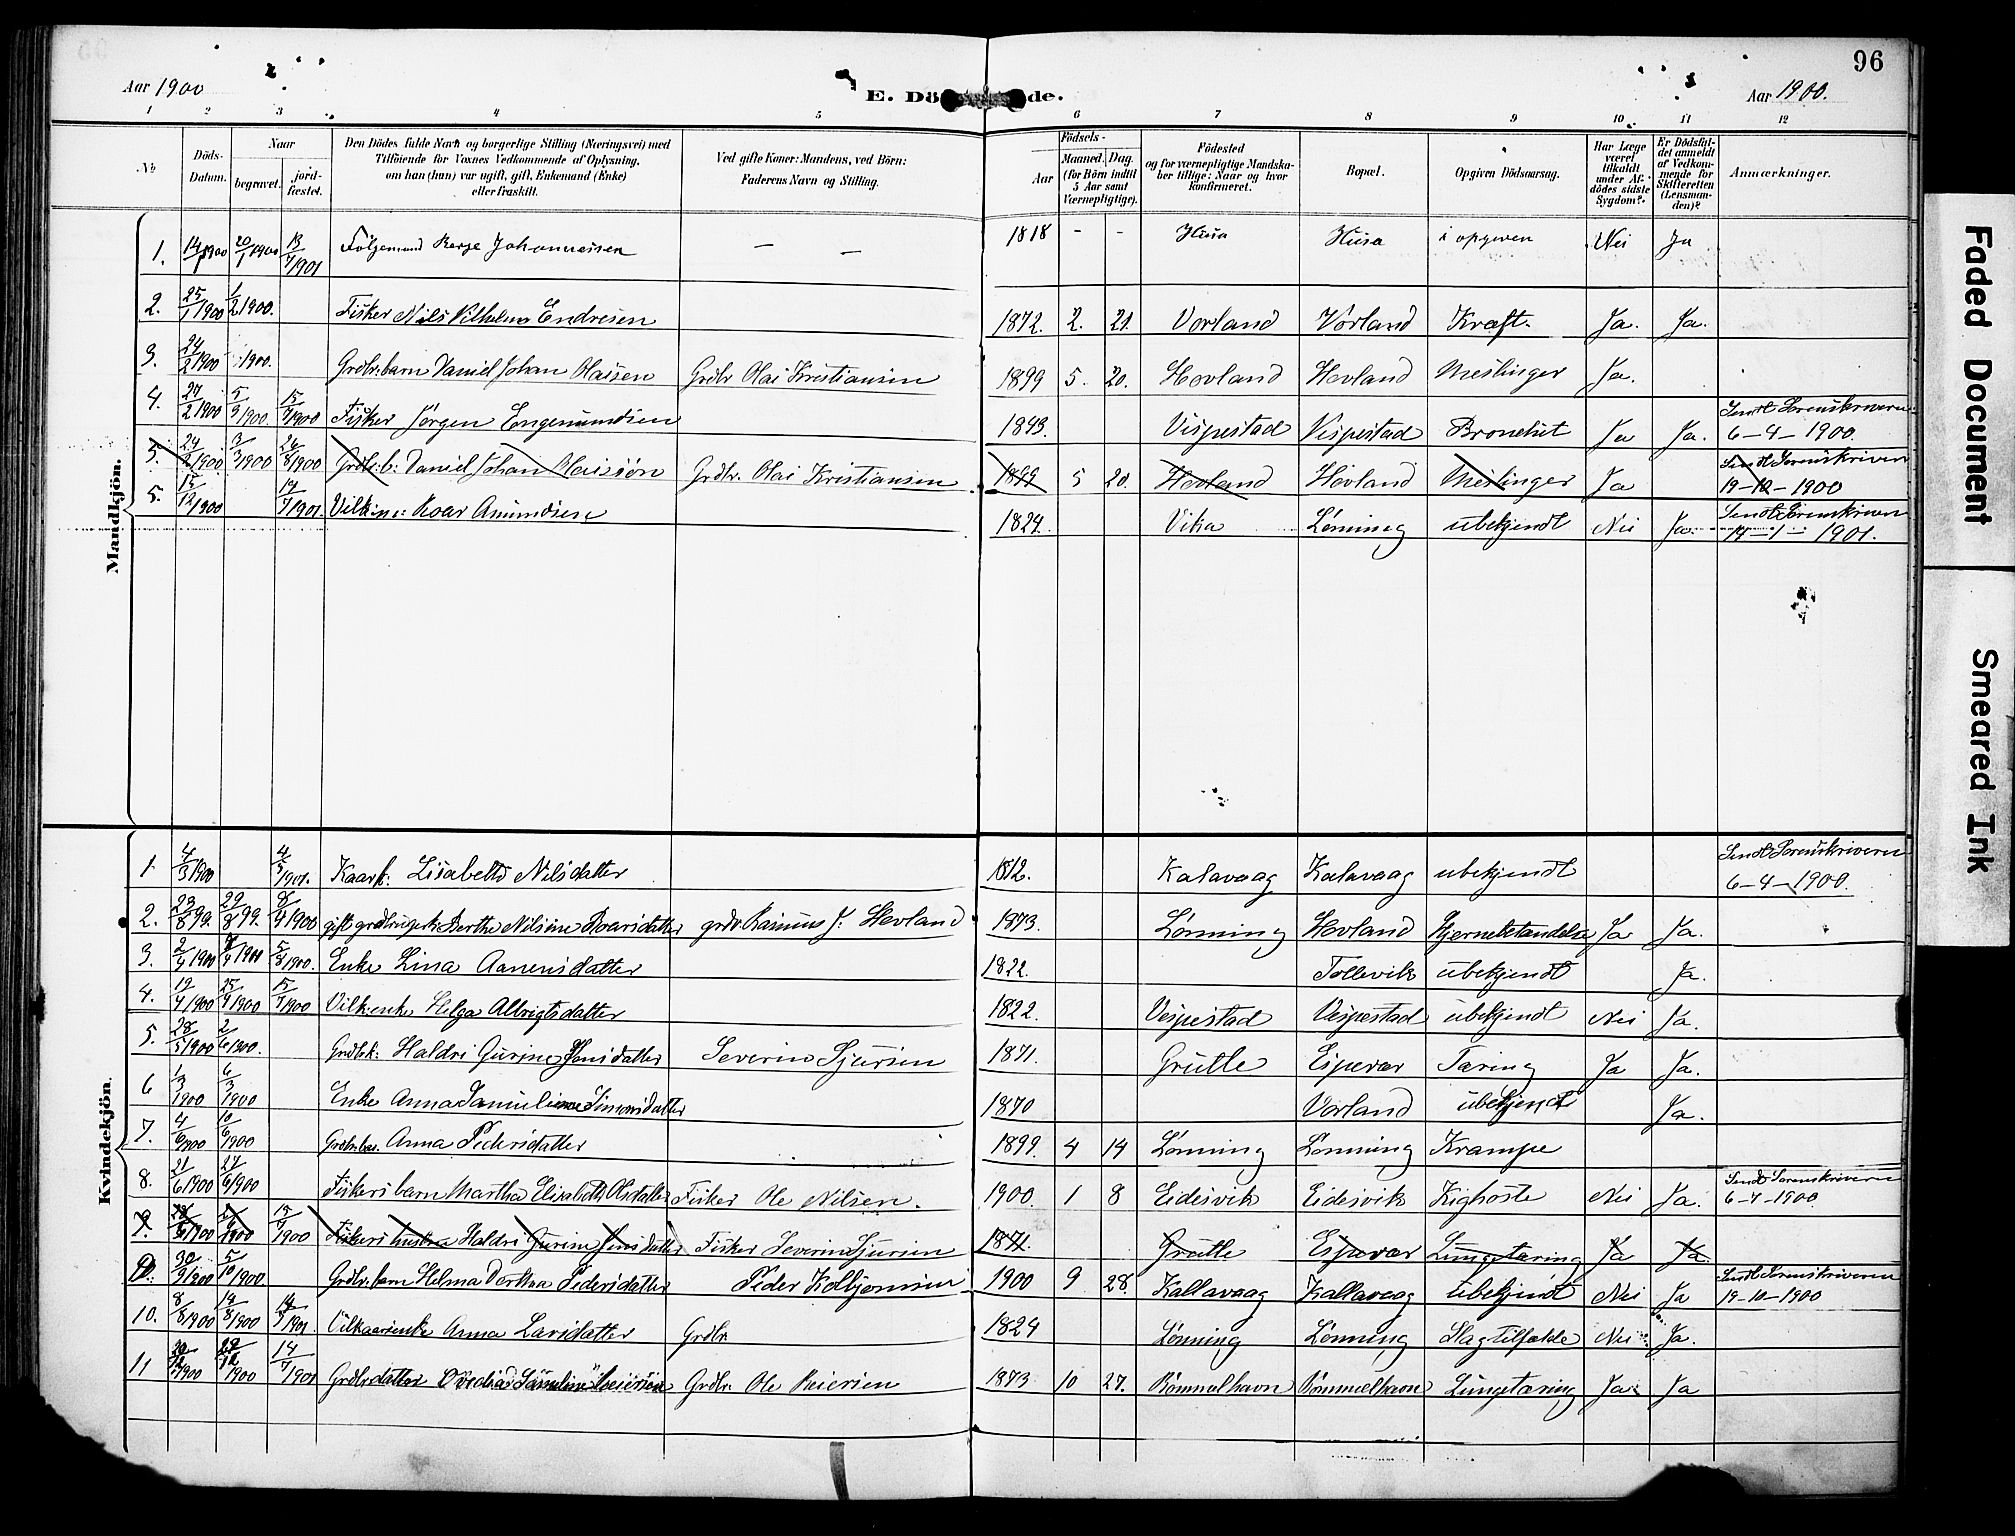 96
Aar 1900
E. Dö de.
Aar 1900.
1 2 3 4 5 6 7 8 9 10 11 12
No
Döds-Datum.
Naar
begravet.
jordfæstet.
Den Dödes fulde Navn og borgerlige Stilling (Næringsvei) med
Tilföiende for Voxnes Vedkommende af Oplysning,
om han (hun) var ugift, gift, Enkemand (Enke)
eller fraskilt.
Ved gifte Koner: Mandens, ved Börn:
Faderens Navn og Stilling.
Födsels-
Aar
Maaned. Dag.
(for Börn indtil
5 Aar samt
Værnepligtige).
Födested
og for værnepligtige Mandskaber tillige: Naar og hvor
konfirmeret.
Bopæl.
Opgiven Dödsaarsag.
Har Læge
været
tilkaldt
under Afdödes sidste
Sygdom?
Er Dödsfaldet anmeldt
af Vedkommende for
Skifteretten
(Lensmanden)?
Anmærkninger.
Mandkjön.
1. 14/1 1900 20/1 1900 13/7 1901 Følgemand Berge Johannessen — — 1818 - - Husa Husa i opgiven Nei Ja
2. 25/1 1900 1/2 1900. Fisker Nils Vilhelm Endresen 1872. 2. 21. Vorland Vorland Kræft. Ja. Ja.
3. 24/2 1900 1900. Grdbr.barn Daniel Johan Olaisen Grdbr Olai Kristiansen 1899 5. 20. Hovland Hovland Meslinger Ja.
4. 27/2 1900 5/3 1900. 15/7 1900 Fisker Jørgen Engemundsen 1843. Vispestad Vispestad Bronchit Ja Ja. Sendt Sorenskriveren
6-4-1900.
5. 24/2 1900 3/3 1900 26/8 1900 Grdbr.b: Daniel Johan Olaissøn Grdbr. Olai Kristiansen 1899 5 20. Hovland Hovland Meslinger Ja Sendt Sorenskriveren
19-10-1900
5. 15/12 1900 14/7 1901 Vilk: Roar Amundsen 1824. Vika Lønning ubekjendt Nei Ja. Sendt Sorenskriveren
14-1-1901.
Kvindekjön.
1. 4/3 1900 4/5 1901. Kaark: Lisabeth Nilsdatter 1812. Kalavaag Kalavaag ubekjendt Sendt Sorenskriveren
6-4-1900.
2. 23/8 99. 29/8 99. 8/4 1900 gift Berthe Nilsine Roarsdatter grdbr Rasmus J. Hovland 1873. Lønning Hovland Hjernebetændelse Ja Ja.
3. 2/4 1900 1900 5/8 1900. Enke Lina Aanensdatter 1822. Tollevik ubekjendt Ja.
4. 19/4 1900 25/4 1900 15/7 1900 Vilk:enke Helga Albrigtsdatter 1822. Vespestad Vespestad ubekjendt Nei Ja.
5. 28/5 1900 2/6 1900. Grdbk: Haldri Gurine Jensdatter Severin Sjursen 1871. Grutle Espevær Tæring Ja Ja.
6 1/3 1900 6/3 1900 Enke Anna Samuline Simonsdatter 1870 Vorland ubekjendt Ja.
7. 4/6 1900 10/6 1900 Grdbr.ba. Anna Pedersdatter 1899. 4 14 Lønning Lønning Krampe
8. 21/6 1900 24/6 1900 Fiskersbarn Martha Elisabeth Olsdatter Fisker Ole Nilsen. 1900. 1 8 Eidesvik Eidesvik Kighoste Nei Ja. Sendt Sorenskriveren
6-7-1900
9. 28/5 1900 2/6 1900 15/7 1900 Fiskers hustru Haldri Gurine Jensdatter Fisker Severin Sjursen 1871. Grutle Espevær Lungetæring Ja Ja
9. 30/9 1900 5/10 1900. Grdbr.barn Helma Pedersdatter Peder Kolbjørnsen 1900 9 28. Kallavaag Kallavaag ubekjendt Nei Ja Sendt Sorenskriveren
19-10-1900
10. 8/8 1900 14/8 1900 1901. Vilkaarsenke Anna Larsdatter Grdbr. 1824 Lønning Lønning Slagtilfælde Nei Ja.
11 20/12 1900 22/12 1900 14/7 1901 Grdbrdatter Grdbr. Ole Reiersen 1873 10 27. Bømmelhavn Bømmelhavn Lungetæring Ja. Ja
Faded Document
Smeared Ink